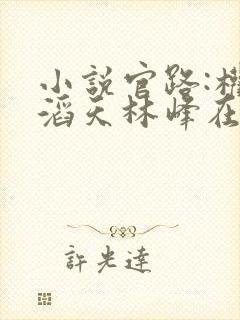 小説官路:權
滔天林峰在
許光達